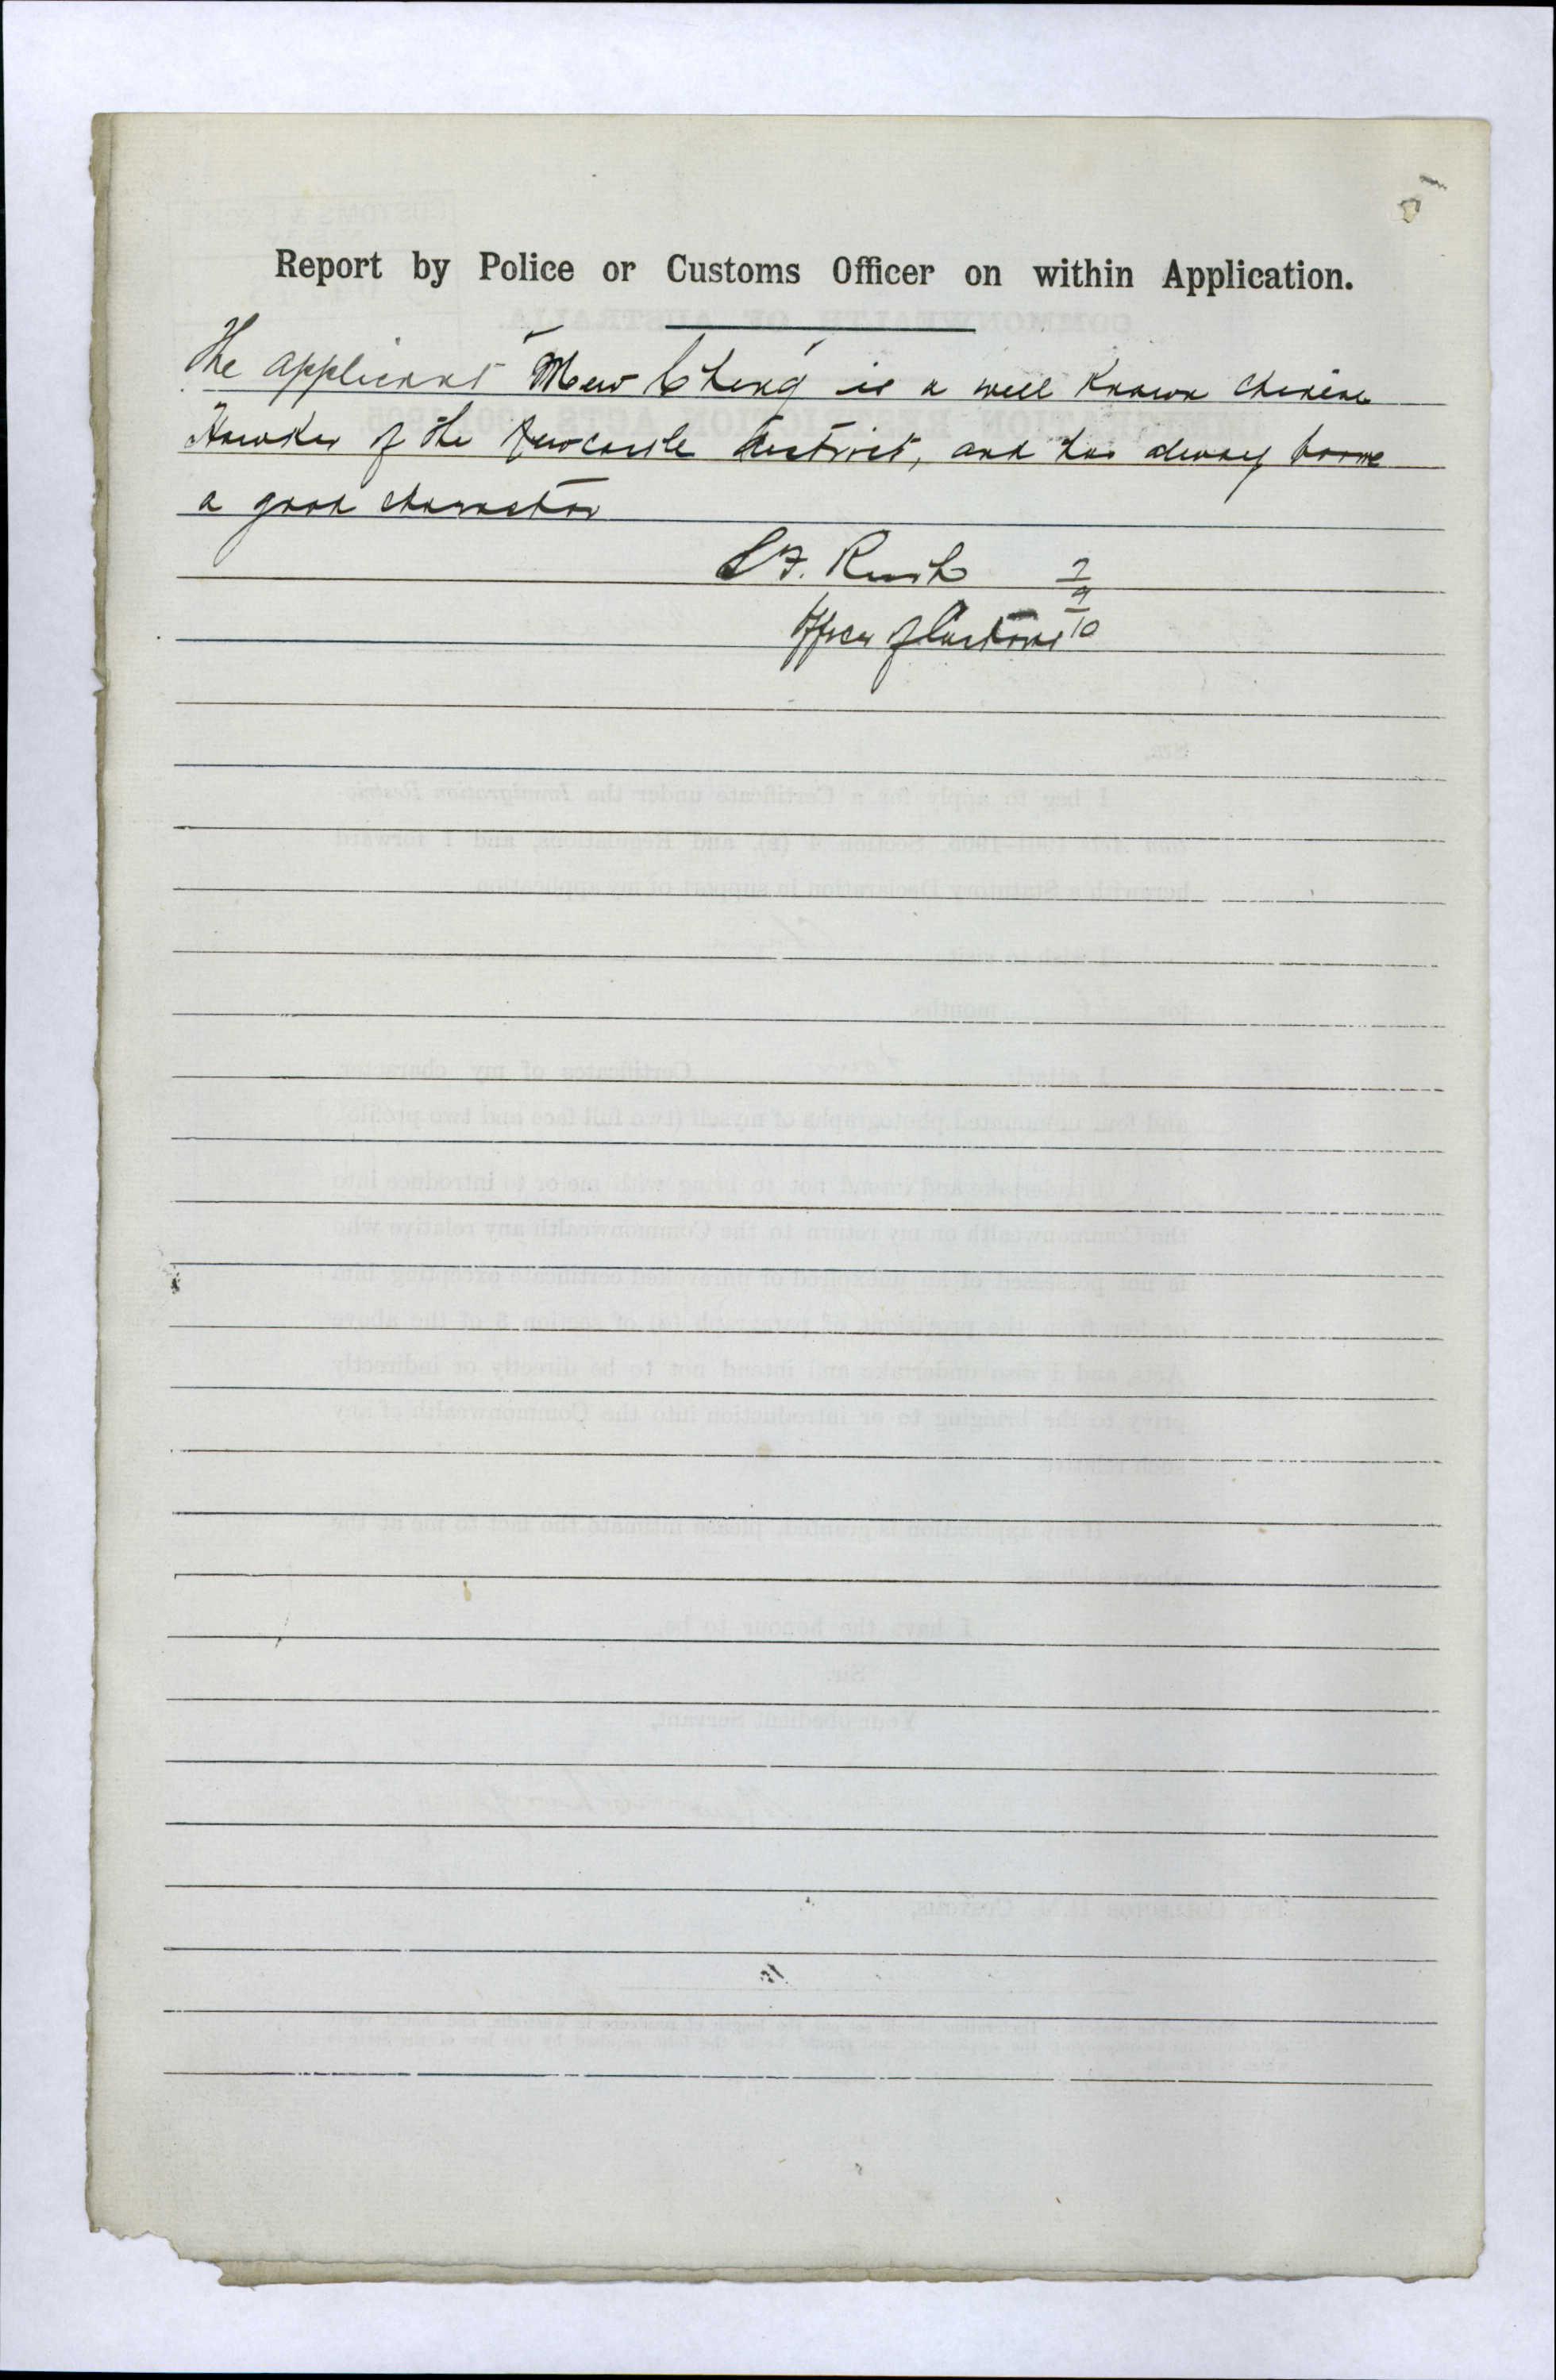 Report by Police or Customs Officer on within Application.
The applicant Mew Cheng is a well known Chinese
Hawker of the Newcastle district, and has always borne
a good character
Rush 2/9/10
Officer of Customs